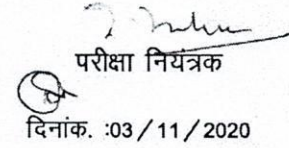 परीक्षा नियंत्रक
दिनांक. :03/11/2020